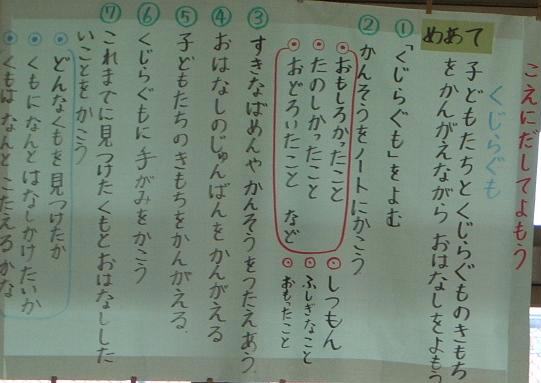 こえにだしてよもう
くじらぐも
めあて
子どもたちとくじらぐものきもち
をかんがえながら おはなしをよもう
① 「くじらぐも」をよむ
② かんそうをノートにかこう
おもしろかったこと
たのしかったこと
おどろいたこと など
しつもん
ふしぎなこと
おもったこと
③ すきなばめんや かんそうをつたえあう
④ おはなしのじゅんばんをかんがえる
⑤ 子どもたちのきもちをかんがえる
⑥ くじらぐもに手がみをかこう
⑦ これまでに見つけたくもとおはなしした
いことをかこう
どんなくもを見つけたか
くもになんとはなしかけたいか
くもはなんとこたえるかな